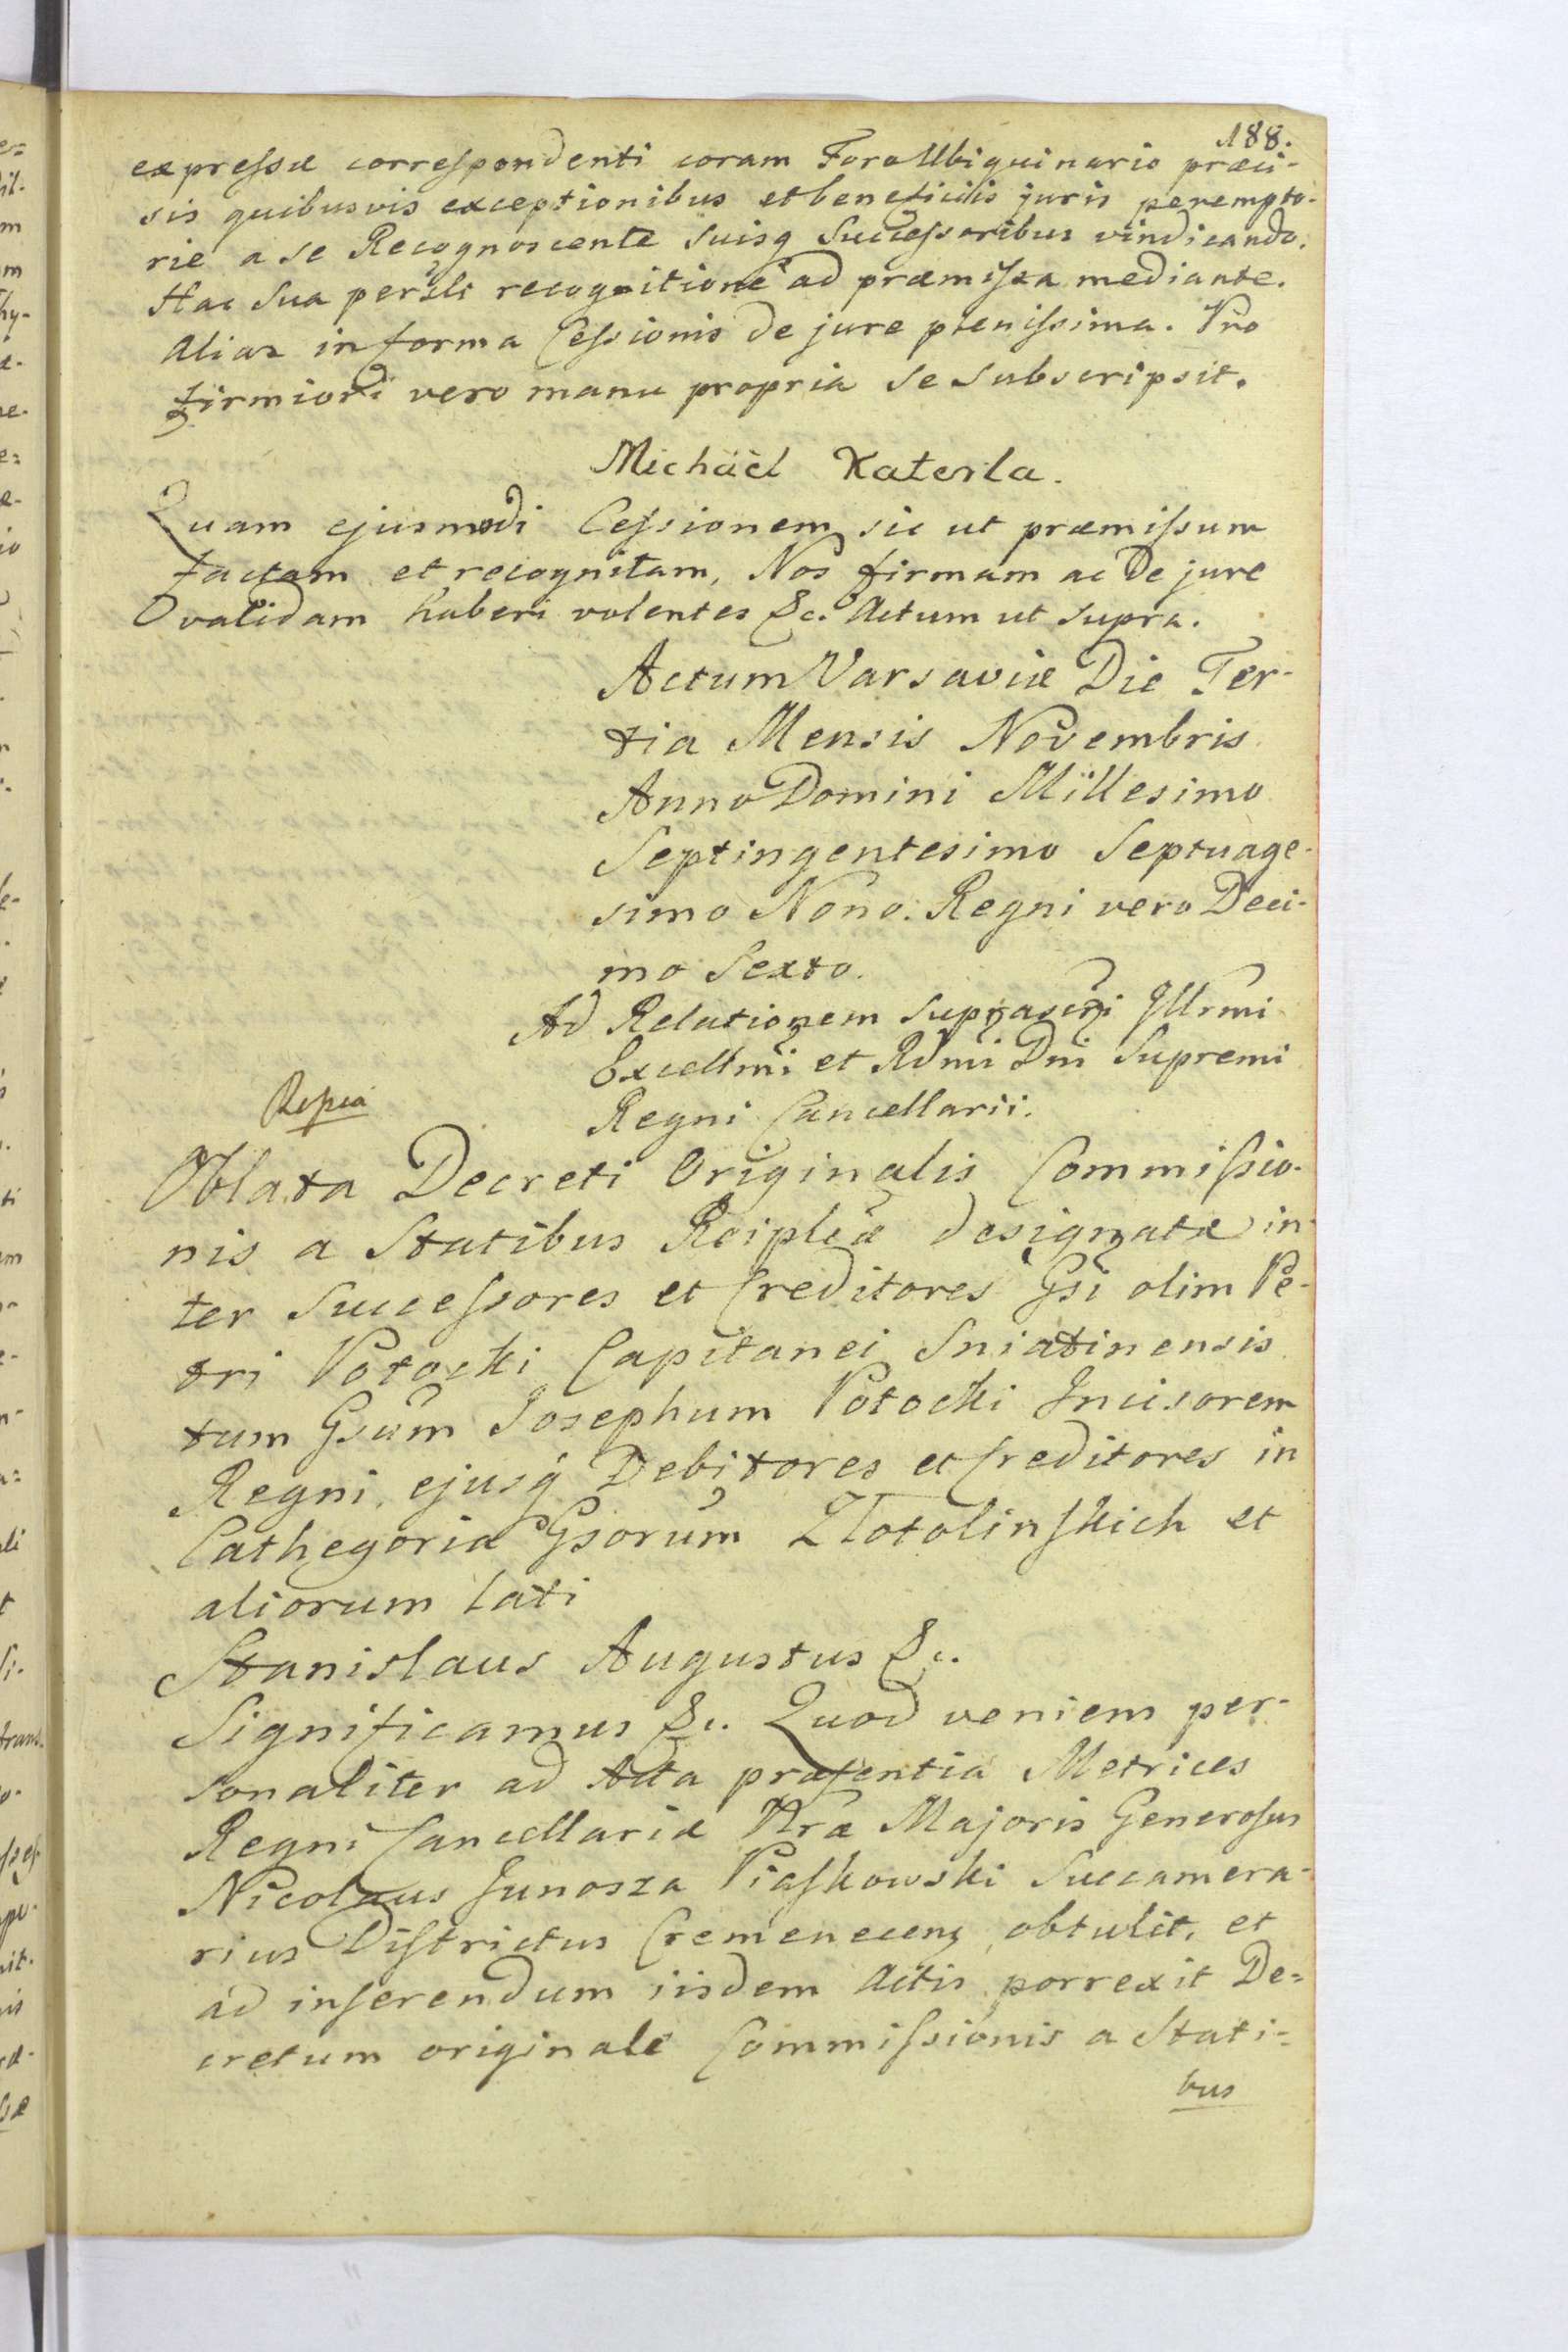 188.
expressæ correspondenti coram Foro Ubiquinario præci-
sis quibusvis exceptionibus et beneficiis juris perempto-
rie a se Recognoscente suisq Successoribus vindicando.
Hac sua persli recognitione ad præmissa mediante.
Alias in forma Cessionis de jure plenissima. Pro
firmiori vero manu propria se subscripsit.
Michäel Katerla.
Quam ejusmodi Cessionem sic ut præmissum
factam et recognitam, Nos firmam ac de jure
validam haberi volentes &c. Actum ut supra.
Actum Varsaviæ Die Ter-
tia Mensis Novembris
Anno Domini Millesimo
Septingentesimo Septuage-
simo Nono. Regni vero Deci-
mo Sexto.
Ad Relationem supascri Illrmi
Excellmi et Rdmi Dni Supremi
Regni Cancellarii.
Oblata Decreti Originalis Commissio-
nis a Statibus Reiplcæ designatæ in-
ter Successores et Creditores Gsi olim Pe-
tri Potocki Capitanei Sniatinensis
tum Gsum Josephum Potocki Incisorem
Regni, ejusq Debitores et Creditores in
Cathegoria Gsorum Złotolinskich et
aliorum lati
Stanislaus Augustus &c.
Significamus &c. Quod veniem per-
sonaliter ad Acta præsentia Metrices
Regni Cancellariæ Nræ Majoris Generosus
Nicolaus Junosza Piaskowski Succamera-
rius Districtus Cremenecens obtulit, et
ad inserendum iisdem Actis porrexit De=
cretum originale Commissionis a Stati=
bus